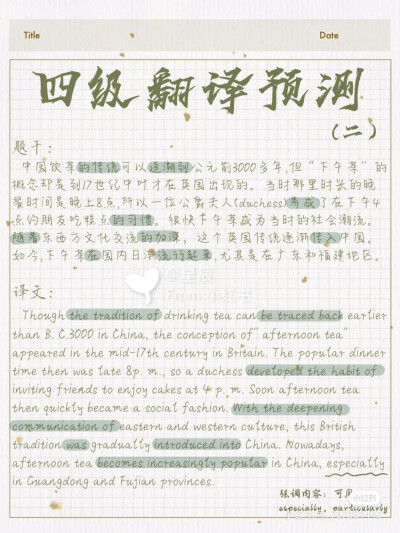 Title
Date
四级翻译预测
（二）
题干：
中国饮茶的传统可以追溯到公元前3000多年，但“下午茶”的
概念却是到17世纪中叶才在英国出现的。当时那里时长的晚
餐时间是晚上8点，所以一位公爵夫人(duchess)养成了在下午4
点约朋友吃糕点的习惯。很快下午茶成为当时的社会潮流。
随着东西方文化交流的加深，这个英国传统逐渐传入中国。
如今，下午茶在国内日渐流行起来，尤其是在广东和福建地区。
译文：
Though the tradition of drinking tea can be traced back earlier
than B. C.3000 in China, the conception of" afternoon tea"
appeared in the mid-17th century in Britain. The popular dinner
time then was late 8p. m., so a duchess developed the habit of
inviting friends to enjoy cakes at 4 p. m. Soon afternoon tea
then quickly became a social fashion. With the deepening
communication of eastern and western culture, this British
tradition was gradually introduced into China. Nowadays,
afternoon tea becomes increasingly popular in China, especially
in Guangdong and Fujian provinces.
强调内容：可用
especially, particularly
@星辰
From 小红书
小红书